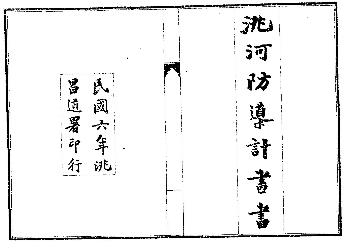 洮河防導計畫書
民國六年洮
昌道署印行